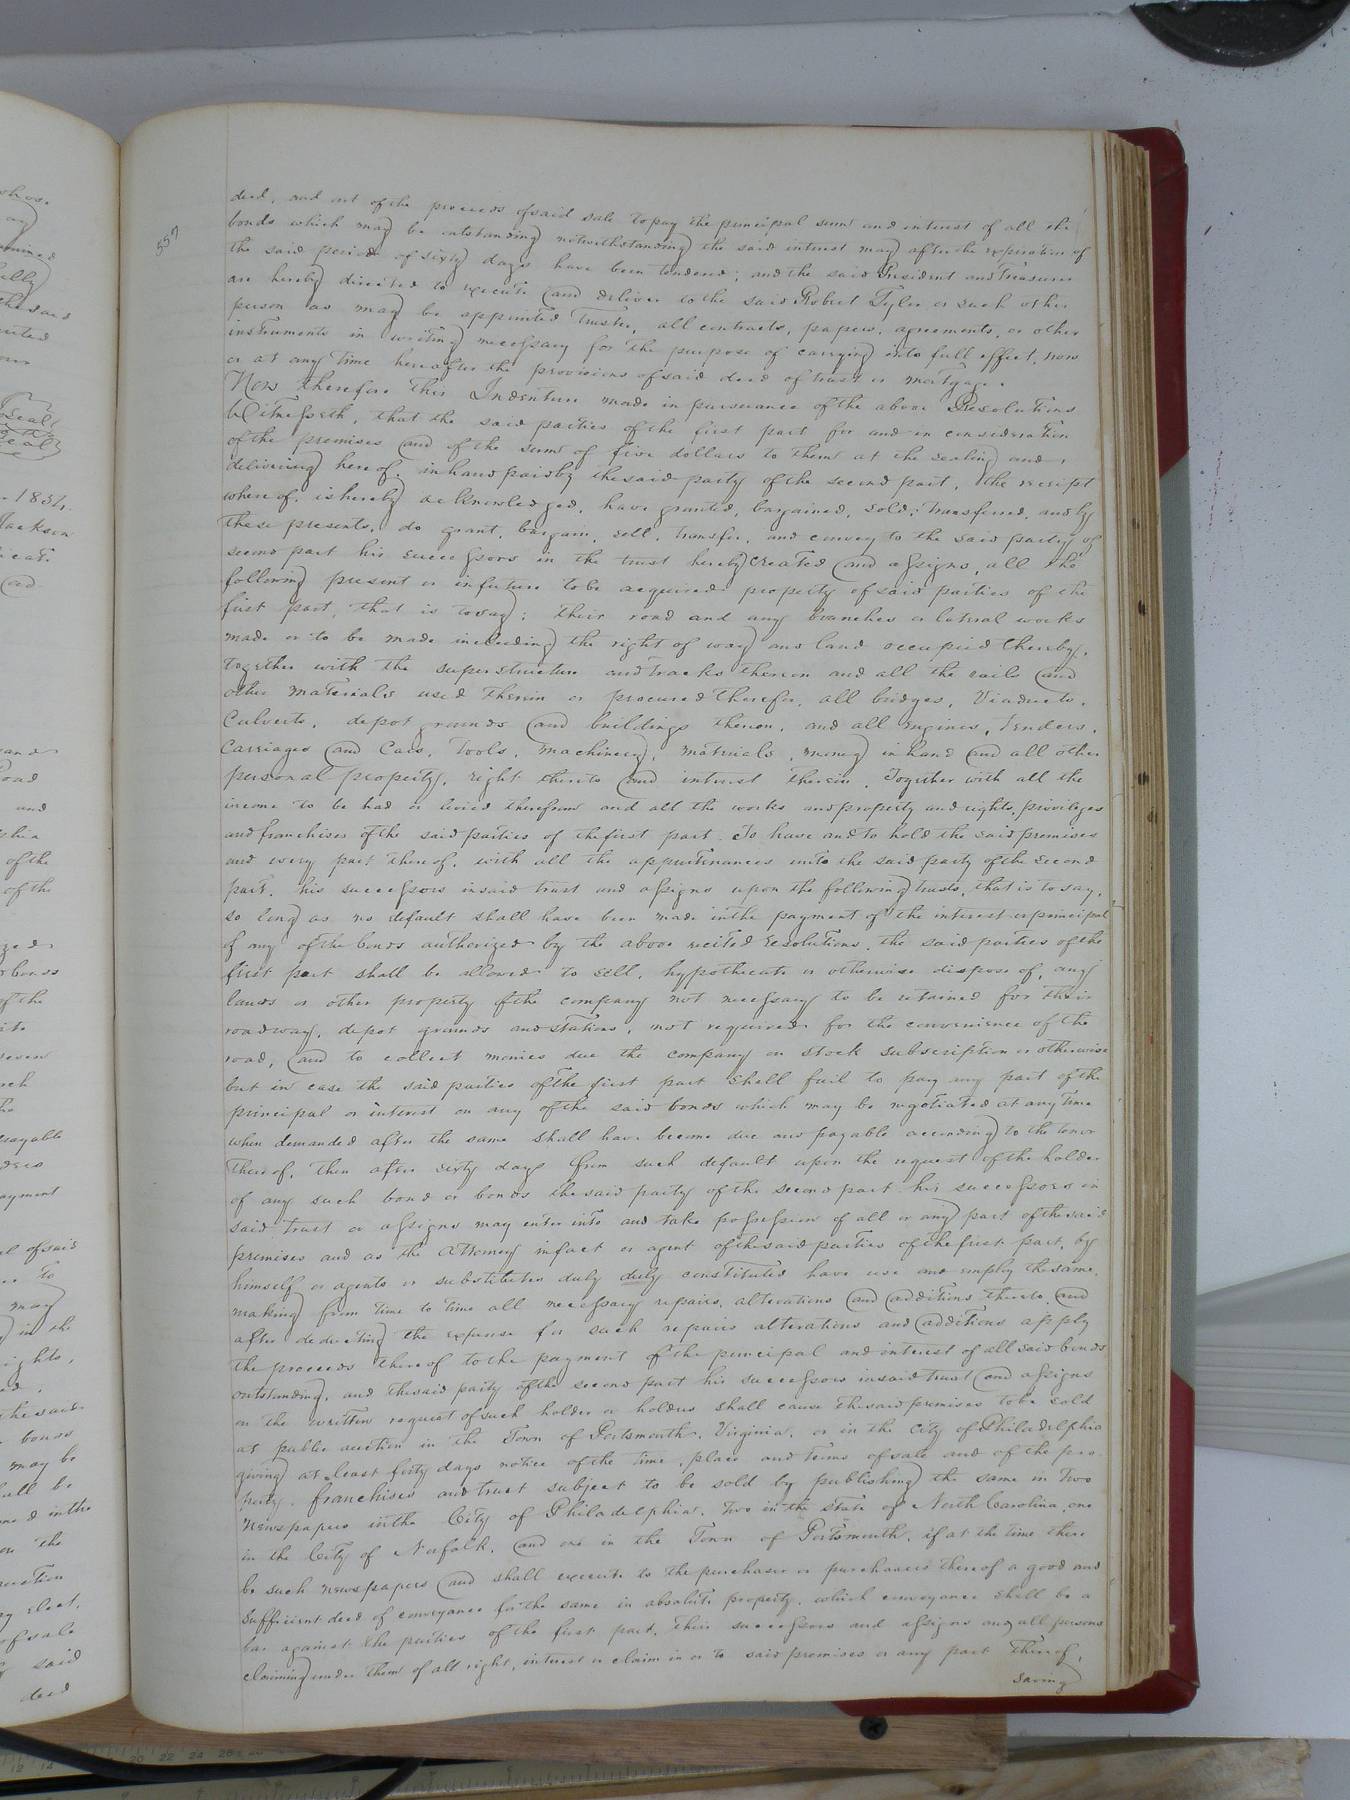 557
deed, and out of the proceeds of said sale to pay the principal sum and interest of all the
bonds which may be outstanding notwithstanding the said interest may after the expiration of
the said period of sixty days have been tendered; and the said President and Treasurer
are hereby directed to execute and deliver to the said Robert Tyler or such other
person as may be appointed Trustee, all contracts, papers, agreements, or other
instruments in writing necessary for the purpose of carrying into full effect, now
or at any time hereafter the provisions of said deed of trust or mortgage.
Now therefore this Indenture made in pursuance of the above Resolutions
Witnesseth, that the said parties of the first part for and in consideration
of the premises and of the sum of five dollars to them at the sealing and
delivering hereof, in hand paid by the said party of the second part, the receipt
whereof is hereby acknowledged, have granted, bargained, sold, transferred, and by
these presents, do grant, bargain, sell, transfer, and convey to the said party of
second part his successors in the trust hereby created and assigns, all the
following present or in future to be acquired property of said parties of the
first part, that is to say; their road and any branches or lateral works
made or to be made including the right of way and land occupied thereby,
together with the superstructure and tracks thereon and all the rails and
other materials used therein or procured therefor, all bridges, Viaducts,
Culverts, depot grounds and buildings thereon, and all engines, Tenders,
Carriages and Cars, Tools, machinery, materials, money in hand and all other
personal property, right thereto and interest therein, Together with all the
income to be had or levied therefrom and all the works and property and rights, privileges
and franchises of the said parties of the first part. To have and to hold the said premises
and every part thereof, with all the appurtinances unto the said party of the second
part, his successors in said trust and assigns upon the following trusts, that is to say,
so long as no default shall have been made in the payment of the interest or principal
of any of the bonds authorized by the above recited resolutions, the said parties of the
first part shall be allowed to sell, hypothecate or otherwise dispose of, any
lands or other property of the company not necessary to be retained for their
roadway, depot grounds and stations, not required for the convenience of the
road, and to collect monies due the company on stock subscription or otherwise
but in case the said parties of the first part shall fail to pay any part of the
principal or interest on any of the said bonds which may be negotiated at any time
when demanded after the same shall have become due and payable according to the tenor
thereof, then after sixty days from such default upon the request of the holder
of any such bond or bonds the said party of the second part his successors in
said trust or assigns may enter into and take possession of all or any part of the said
premises and as the Attorney in fact or agent of the said parties of the first part, by
himself or agents or substitutes duly duly constituted have use and employ the same,
making from time to time all necessary repairs, alterations and additions thereto and
after deducting the expense for such repairs alterations and additions apply
the proceeds thereof to the payment of the principal and interest of all said bonds
outstanding, and the said party of the second part his successors in said trust and assigns
on the written request of such holder or holders shall cause the said premises to be sold
at public auction in the Town of Portsmouth, Virginia, or in the City of Philadelphia
giving at least forty days notice of the time, place and terms of sale and of the pro-
perty, franchises and trust subject to be sold by publishing the same in Two
Newspapers in the City of Philadelphia, two in the state of North Carolina, one
in the City of Norfolk, and one in the Town of Portsmouth, if at the time there
be such newspapers and shall execute to the purchaser or purchasers thereof a good and
sufficient deed of conveyance for the same in absolute property, which conveyance shall be a
bar against the parties of the first part, their successors and assigns and all persons
claiming under them of all right, interest or claim in or to said premises or any part thereof,
saving